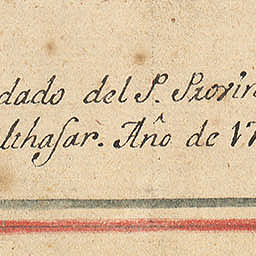 dado del P. Provin
lthasar. Año de 17